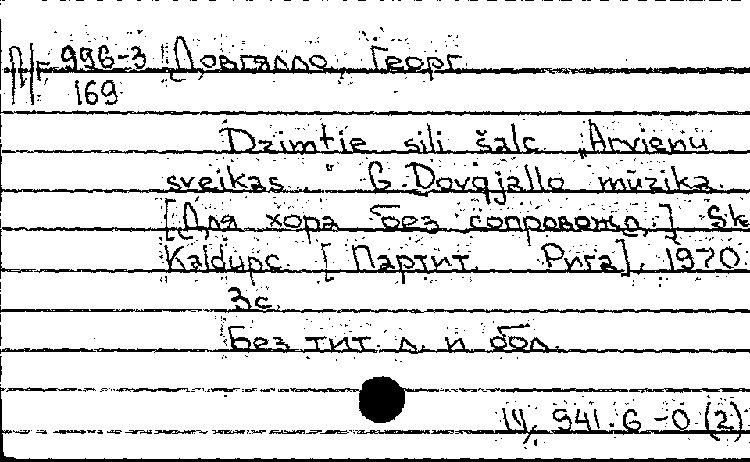 П/г 996-3 Довгялло, Георг
169
Dzimtie sili šalc „Arvienu
sveikas." G. Dovgjallo mūzika.
[Для хора без сопровожд.] Sk.
Kaldups. [Партит. Рига], 1970.
3с.
Без тит. л. и обл.
941.6-0 (2)